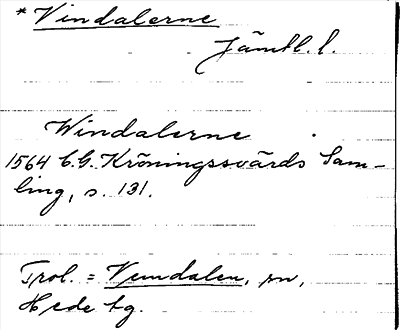 * Vindalerne
Jämtl. l.
Windalerne
1564 C.G. Kröningssvärds Sam-
ling, s. 131.
Trol. = Vemdalen, sn,
Hede tg.